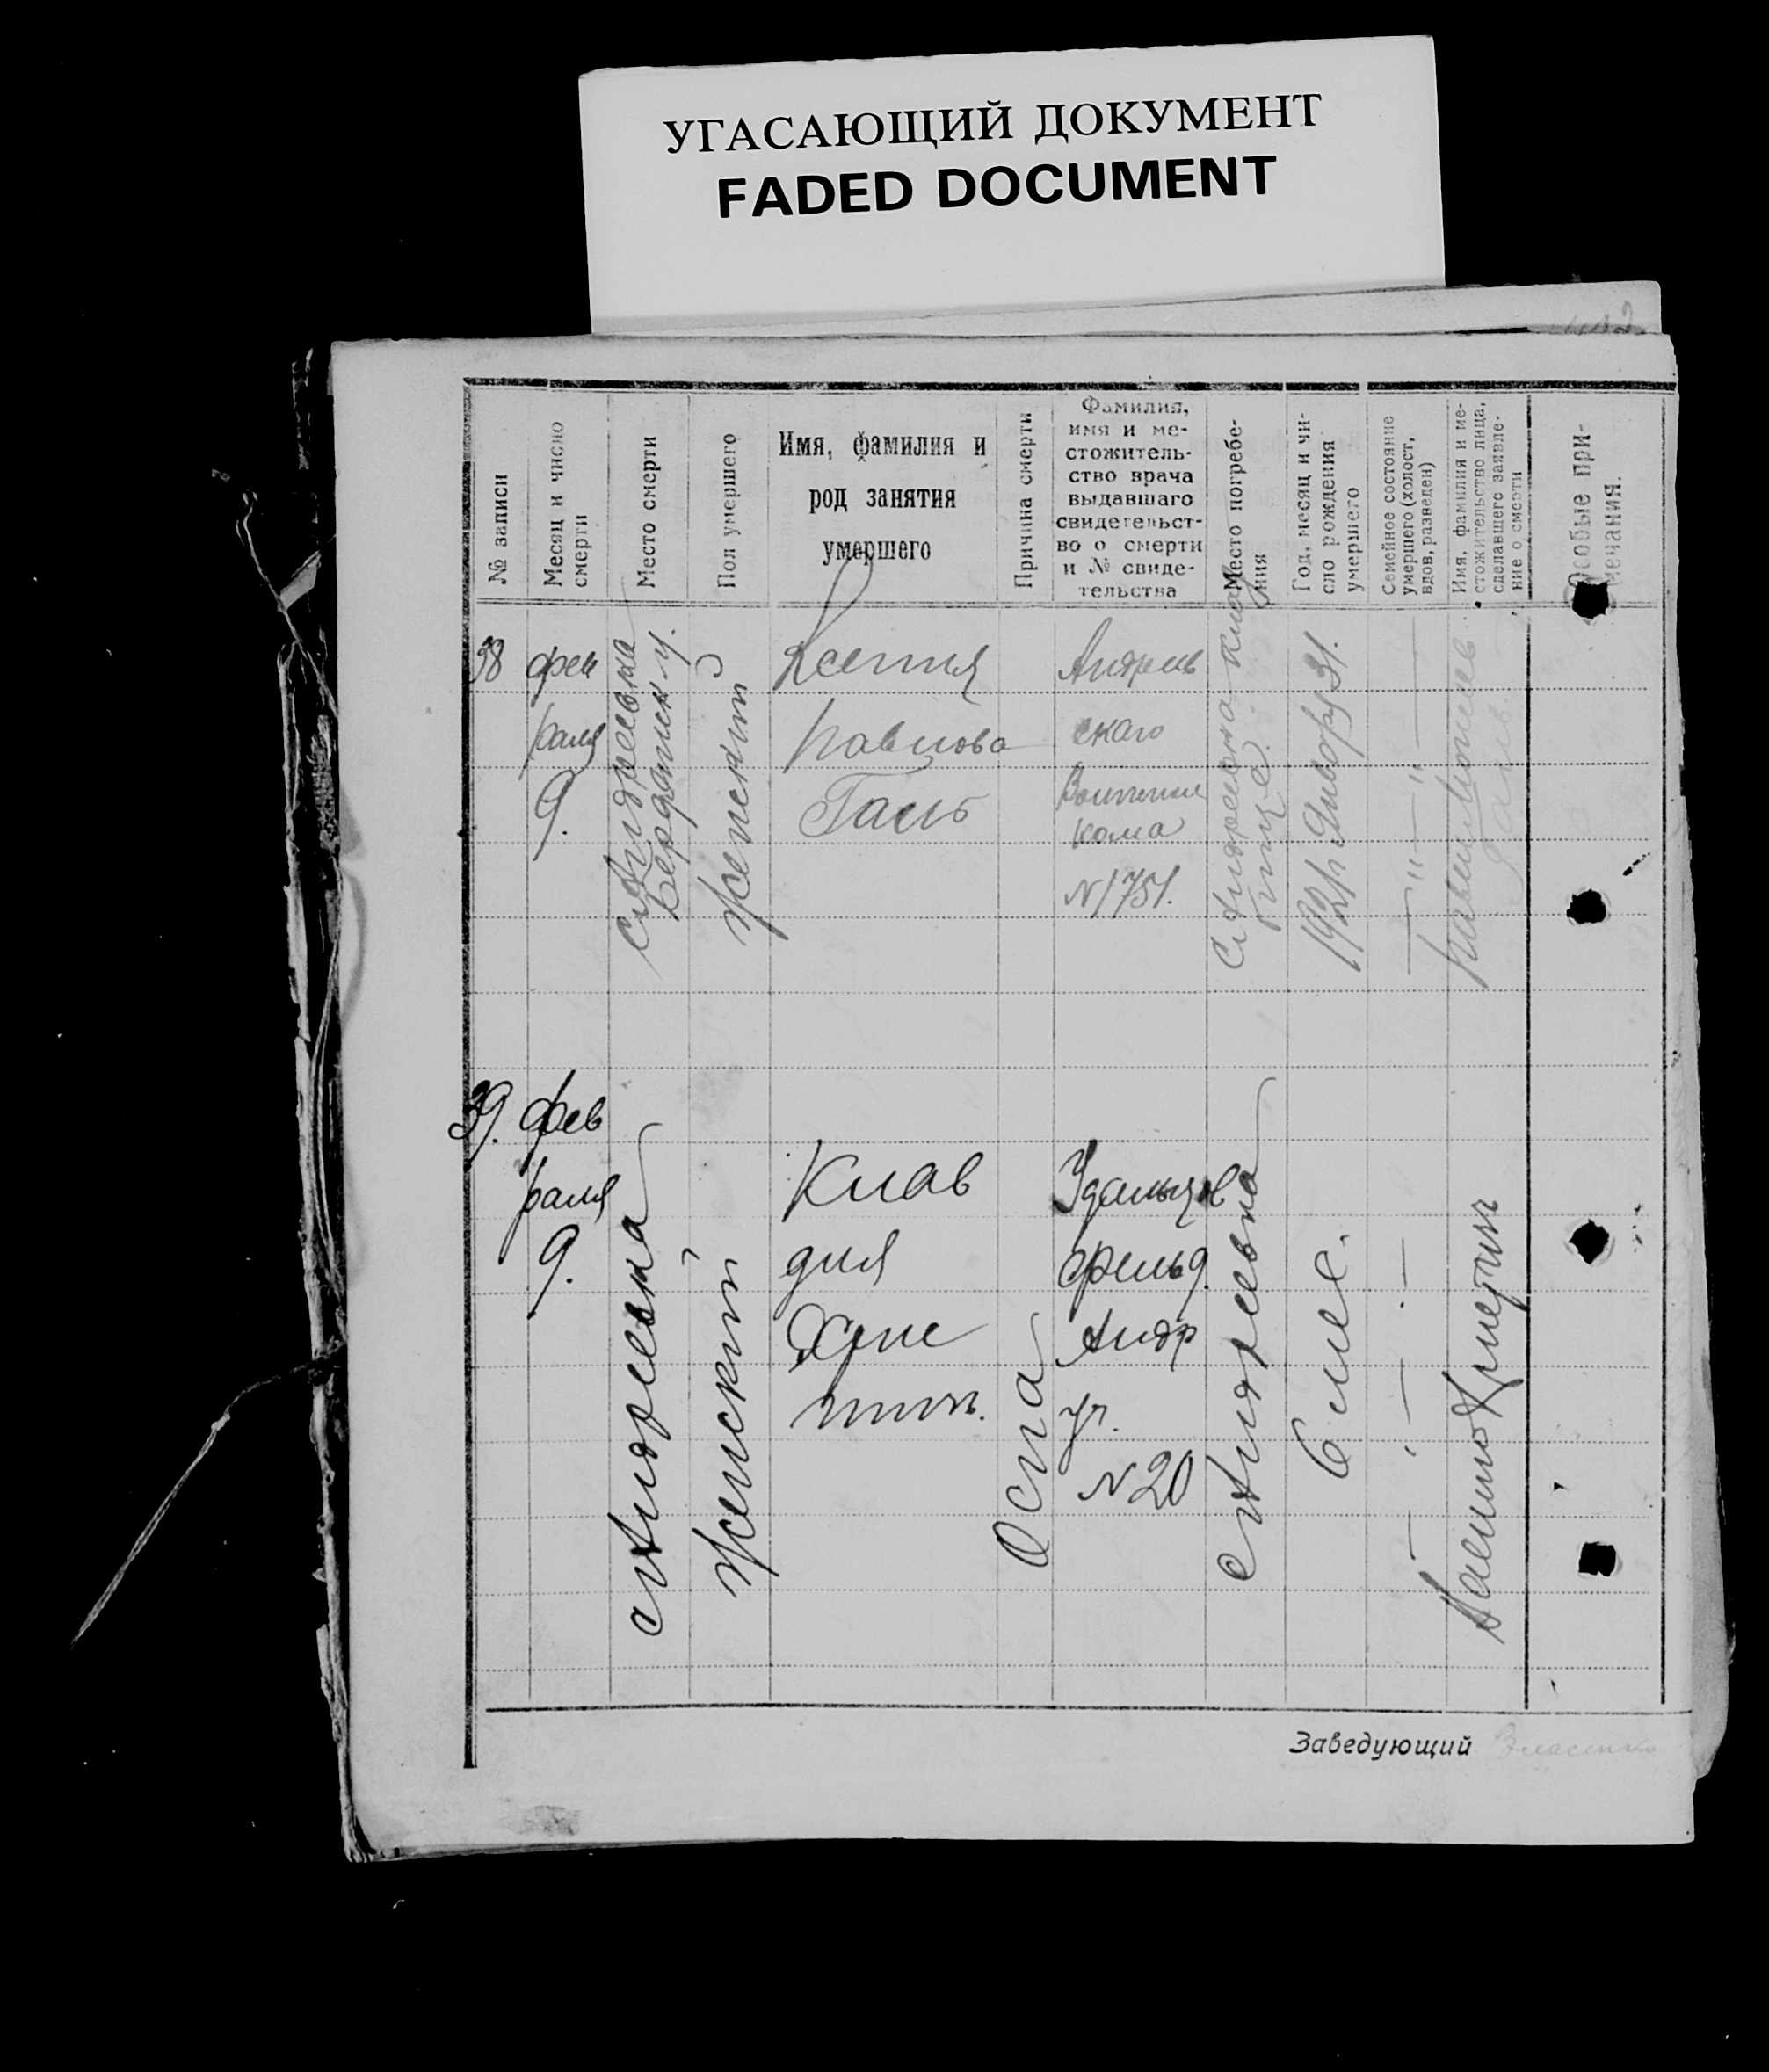 УГАСАЮЩИЙ ДОКУМЕНТ
FADED DOCUMENT
№ записи
Месяц и число
смерти
Место смерти
Пол умершего
Имя, фамилия и
род занятия
умершего
Причина смерти
Фамилия,
имя и ме-
стожитель-
ство врача
выдавшаго
свидетельст-
во о смерти
и № свиде-
тельства
Место погребе-
ния
Год, месяц и чи-
сло рождения
умершего
Семейное состояние
умершего (холост,
вдов, разведен)
Имя, фамилия и ме-
стожительство лица,
сделавшего заявле-
ние о смерти
Особые при-
мечания.
38
фев
раля
9.
с Андреевка
Бердянск у.
женский
Ксения
Павлова
Галь
Андреев
скаго
Волиспол
кома
N 1751.
С Андреевка
Января 31.
39.
фев
раля
9.
с Андреевка
женский
Клав
дия
Оспа
Удальцов
фельд.
Андр
N 20
с Андреевка
6 мес.
Заведующий